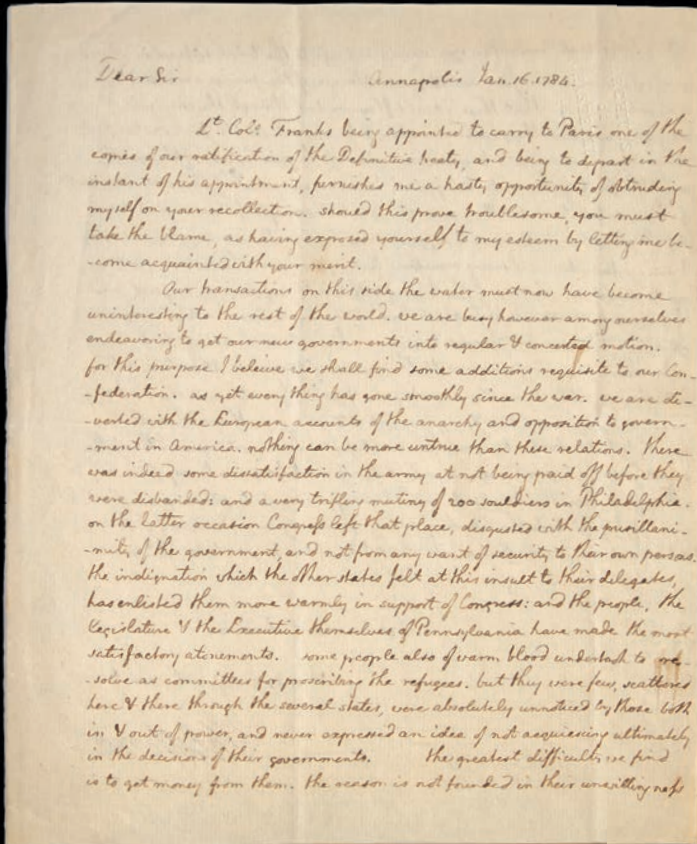 Dear Sir Annapolis Jan. 16. 1784.
Lt. Colo. Franks being appointed to carry to Paris one of the
copies of our ratification of the Definitive treaty, and being to depart in the
instant of his appointment, furnishes me a hasty opportunity of obtruding
myself on your recollection. should this prove troublesome, you must
take the blame, as having exposed yourself to my esteem by letting me be-
-come acquainted with your merit.
Our transactions on this side the water must now have become
uninteresting to the rest of the world. we are busy however among ourselves
endeavoring to get our new governments into regular & concerted motion.
for this purpose I beleive we shall find some additions requisite to our Con-
-federation. as yet every thing has gone smoothly since the war. we are di-
-verted with the European accounts of the anarchy and opposition to govern-
-ment in America. nothing can be more untrue than these relations. there
was indeed some dissatisfaction in the army at not being paid off before they
were disbanded: and a very trifling mutiny of 200 souldiers in Philadelphia.
on the latter occasion Congress left that place, disgusted with the pusillani-
-mity of the government, and not from any want of security to their own persons.
the indignation which the other states felt at this insult to their delegates,
has enlisted them more warmly in support of Congress: and the people, the
Legislature & the Executive themselves of Pennsylvania have made the most
satisfactory atonements. some people also of warm blood undertook to re-
-solve as committees for proscribing the refugees. but they were few, scattered
here & there through the several states, were absolutely unnoticed by those both
in & out of power, and never expressed an idea of not acquiescing ultimately
in the decisions of their governments. the greatest difficulty we find
is to get money from them. the reason is not founded in their unwillingness